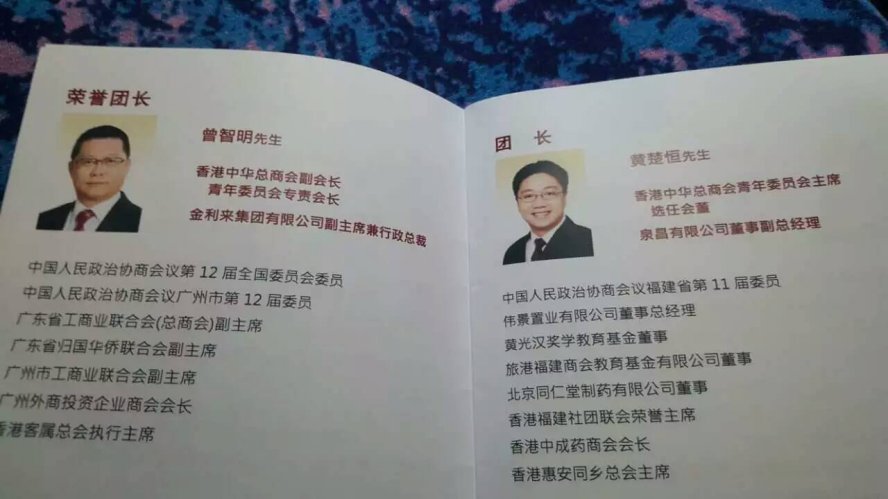 荣誉团长
曾智明先生
香港中华总商会副会长
青年委员会专责会长
金利来集团有限公司副主席兼行政总裁
中国人民政治协商会议第12届全国委员会委员
中国人民政治协商会议广州市第12届委员
广东省工商业联合会(总商会)副主席
广东省归国华侨联合会副主席
广州市工商业联合会副主席
广州外商投资企业商会会长
香港客属总会执行主席
团 长
黄楚恒先生
香港中华总商会青年委员会主席
选任会董
泉昌有限公司董事副总经理
中国人民政治协商会议福建省第11届委员
伟景置业有限公司董事总经理
黄光汉奖学教育基金董事
旅港福建商会教育基金有限公司董事
北京同仁堂制药有限公司董事
香港福建社团联会荣誉主席
香港中成药商会会长
香港惠安同乡总会主席